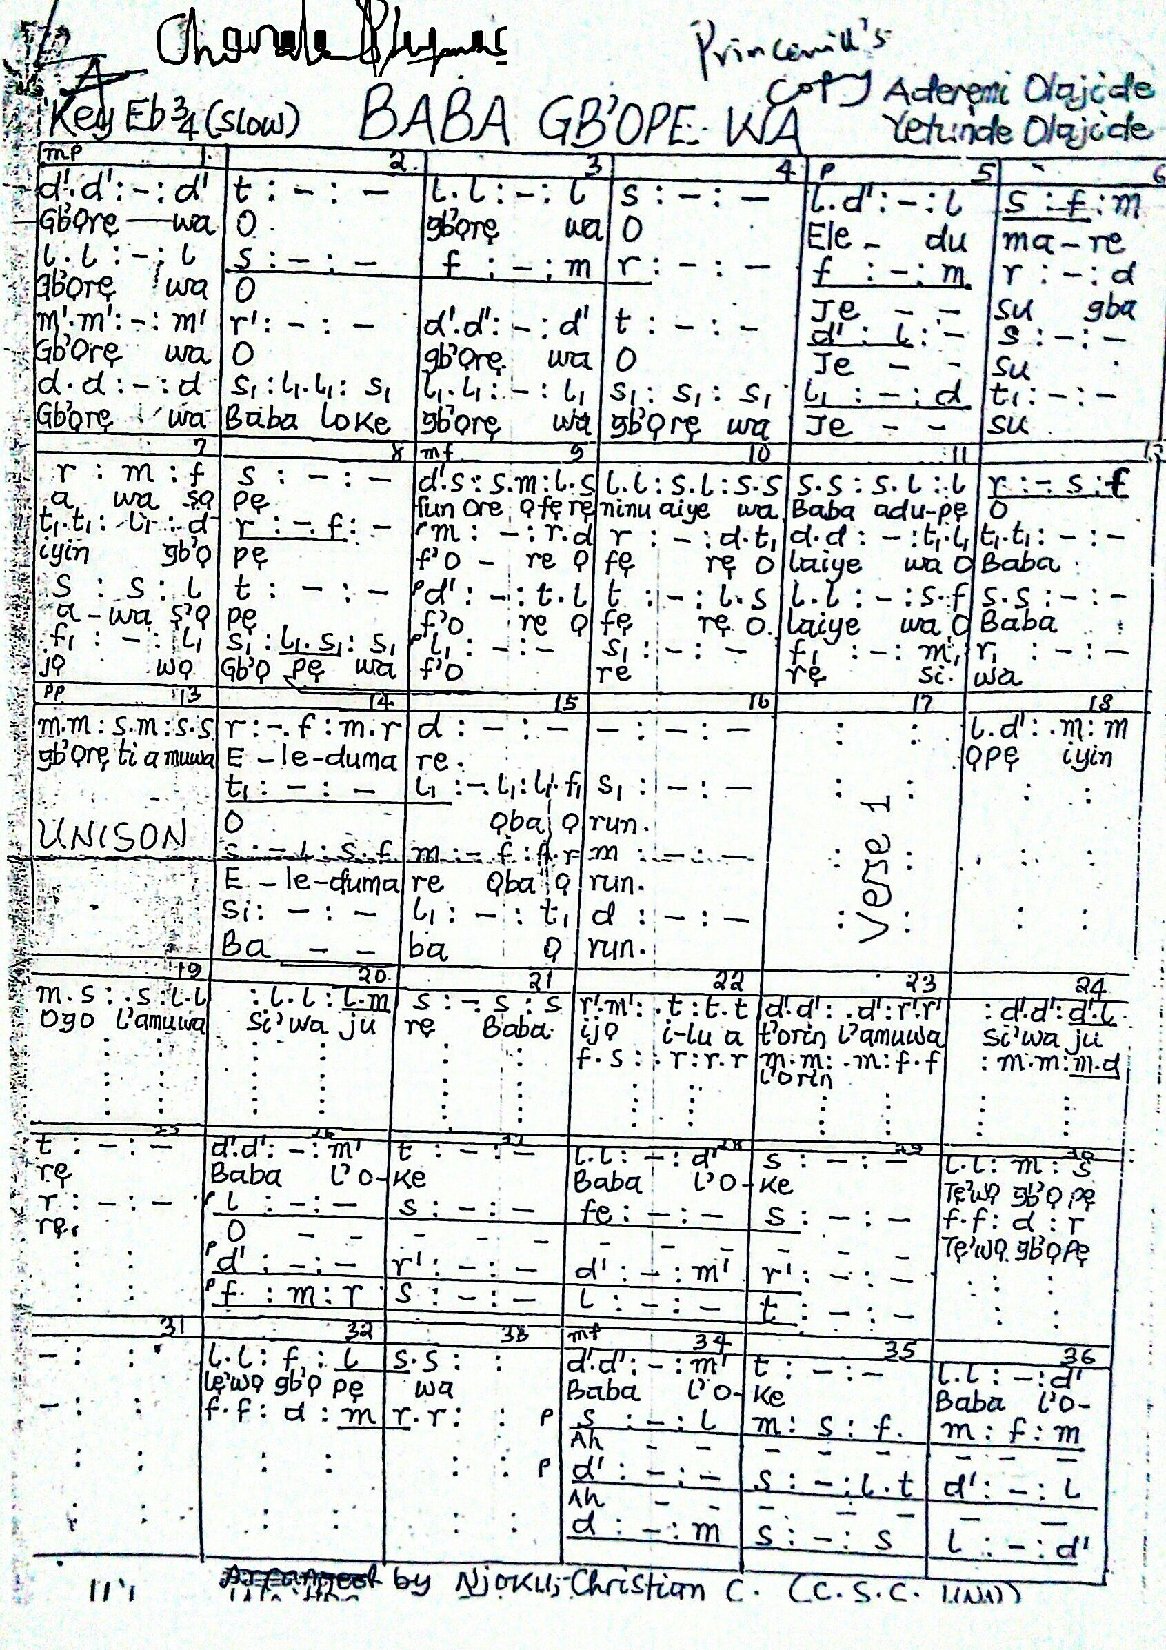 Princewill's
copy Aderemi Olajide
Key Eb 3/4 (slow) BABA GB'OPE WA Yetunde Olajide
mp 1 2 3 4 p 5 6
d'.d':-:d' t:-:- l.l:-:l s:-:- l.d':-:l s:f:m
Gb'ọrẹ wa O gb'ọrẹ wa O Ele - du ma-re
l.l:-:l s:-:- f:-:m r:-:- f:-:m r:-:d
gb'ọrẹ wa O Je - - su gba
m'.m':-:m' r':-:- d'.d':-:d' t:-:- d':l:- s:-:-
Gb'ọrẹ wa O gb'ọrẹ wa O Je - - su
d.d:-:d s₁:l₁.l₁:s₁ l₁.l₁:-:l₁ s₁:s₁:s₁ l₁:-:d t₁:-:-
Gb'ọrẹ wa Baba loke gb'ọrẹ wa gb'ọrẹ wa Je - - su
7 8 mf 9 10 11 12
r:m:f s:-:- d'.s:s.m:l.s l.l:s.l:s.s s.s:s.l:l r:-.s:f
a wa sọ pẹ fun ore ọfẹ rẹ ninu aiye wa Baba adu-pẹ O
t₁.t₁:l₁:d r:-.f:- m:-:r.d r:-:d.t₁ d.d:-:t₁.l₁ t₁.t₁:-:-
iyin gb'ọ pẹ f'O - re ọ fẹ rẹ O laiye wa O Baba
s:s:l t:-:- p d':-:t.l t:-:l.s l.l:-:s.f s.s:-:-
a-wa s'ọ pẹ f'O re ọ fẹ rẹ O laiye wa O Baba
f₁:-:l₁ s₁:l₁.s₁:s₁ p l₁:-:- s₁:-:- f₁:-:m₁ r₁:-:-
jọ wọ Gb'ọ pẹ wa f'O re rẹ si wa
pp 13 14 15 16 17 18
m.m:s.m:s.s r:-.f:m.r d:-:- -:-:- : : l.d':.m:m
gb'ọrẹ ti a muwa E-le-duma re. ọpẹ iyin
t₁:-:- l₁:-.l₁:l₁.f₁ s₁:-:- : : : :
UNISON O Ọba ọ run. Verse 1
s:-.l:s.f m:-.f:f.r m:-:- : : : :
E-le-duma re Ọba ọ run.
si:-:- l₁:-:t₁ d:-:- : : : :
Ba - - ba ọ run.
19 20 21 22 23 24
m.s:.s:l.l :l.l:l.m s:-.s:s r'.m':.t:t.t d'.d':.d':r'.r' :d'.d':d'.l
Ogo l'amuwa si'wa ju rẹ Baba ijọ i-lu a t'orin l'amuwa si'wa ju
f.s:.r:r.r m.m:.m:f.f :m.m:m.d
l'orin
25 26 27 28 29 30
t:-:- d'.d':-:m' t:-:- l.l:-:d' s:-:- l.l:m:s
rẹ Baba l'O-ke Baba l'O-ke Tẹ'wọ gb'ọ pẹ
r:-:- p l:-:- s:-:- fe:-:- s:-:- f.f:d:r
rẹ. O - - - - - - - - - - Tẹ'wọ gb'ọpẹ
: : p d':-:- r':-:- d':-:m' r':-:- : :
: : p f:m:r s:-:- l:-:- t:-:- : :
31 32 33 mf 34 35 36
-: : l.l:f:l s.s: : d'.d':-:m' t:-:- l.l:-:d'
tẹ'wọ gb'ọ pẹ wa Baba l'O-ke Baba l'O-
-: : f.f:d:m r.r: : p s:-:l m:s:f m:f:m
Ah - - - - - - - -
: : : : : : p d':-:- s:-:l.t d':-:l
Ah - - - - - -
: : : : : : d:-:m s:-:s l:-:d'
Arranged by Njoku, Christian C. (C.S.C. UNN)